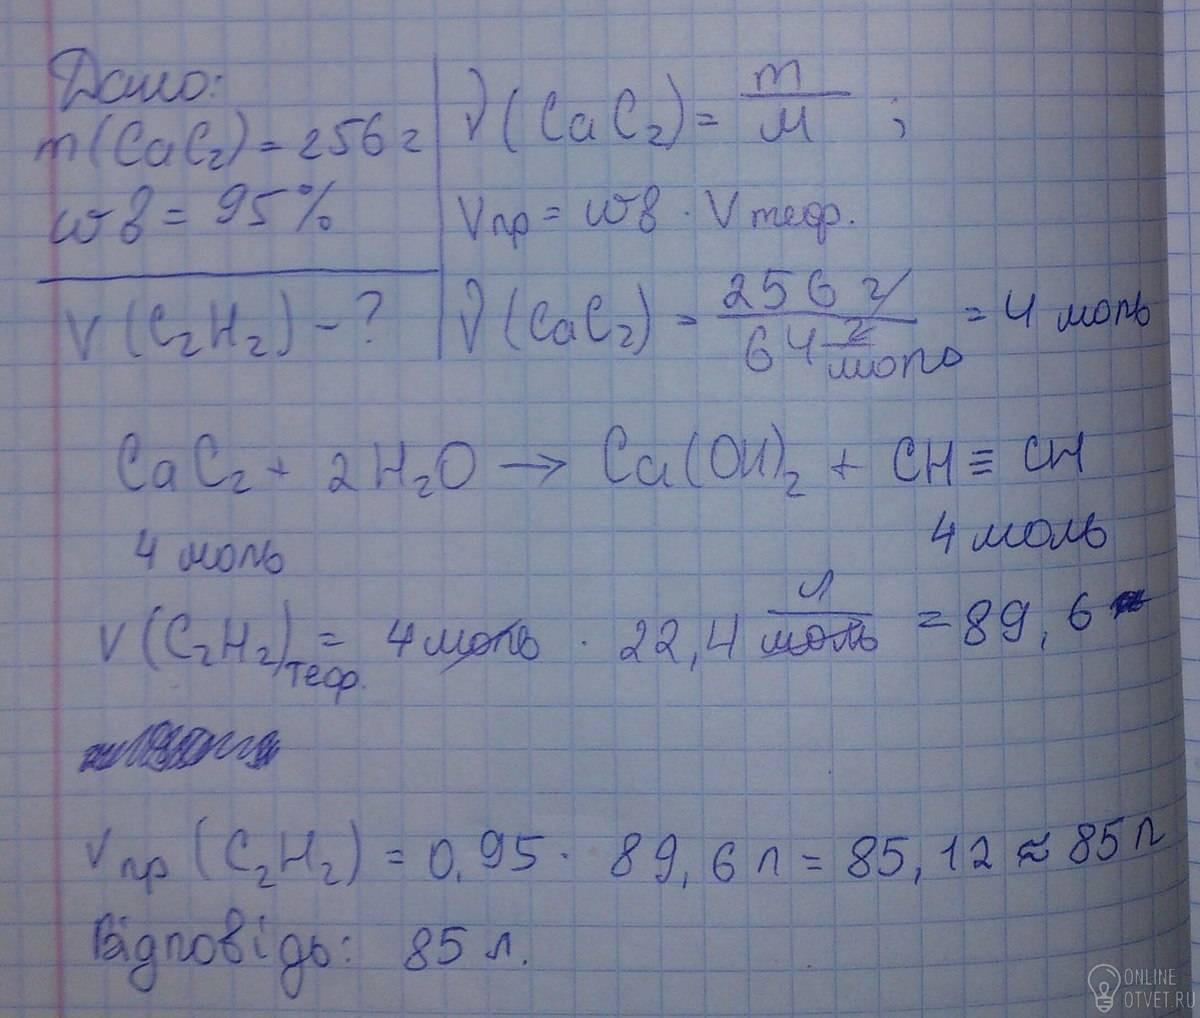 Дано:
m(CaC₂) = 256 г
wв = 95%
V(C₂H₂) - ?
ν(CaC₂) = m/M ;
Vпр = wв · Vтеор.
ν(CaC₂) = 256 г / 64 г/моль = 4 моль
CaC₂ + 2H₂O → Ca(OH)₂ + CH ≡ CH
4 моль 4 моль
V(C₂H₂)теор. = 4 моль · 22,4 л/моль = 89,6
Vпр (C₂H₂) = 0,95 · 89,6 л = 85,12 ≈ 85 л
Відповідь: 85 л.
ONLINE
OTVET.RU